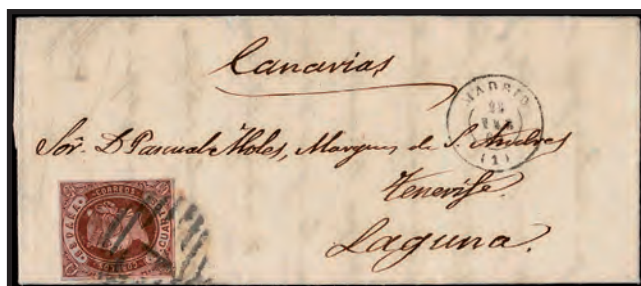 Canarias
MADRID
(1)
Sor. D Pascual Moles, Marques de S. Andres
Tenerife
Laguna.
CORREOS
ESPAÑA
CORREOS